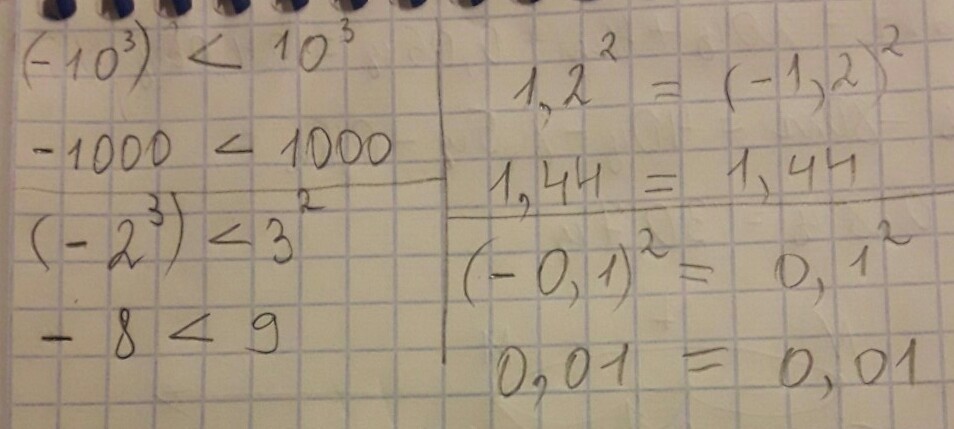 (-10³) < 10³
-1000 < 1000
(-2³) < 3²
- 8 < 9
1,2² = (-1,2)²
1,44 = 1,44
(-0,1)² = 0,1²
0,01 = 0,01